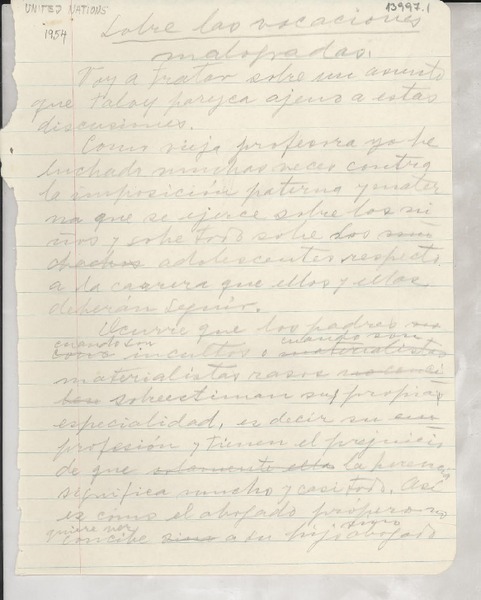 UNITED NATIONS
13997.1
1954
Sobre las vocaciones
malogradas.
Voy a tratar sobre un asunto
que tal vez parezca ajeno a estas
discusiones.
Como vieja profesora yo he
luchado muchas veces contra
la imposición paterna y mater
na que se ejerce sobre los ni
ños y sobre todo sobre los
adolescentes respecto
a la carrera que ellos y ellas
deberán seguir.
Ocurre que los padres
cuando son incultos o cuando son
materialistas rasos
sobreestiman su propia
especialidad, es decir su
profesión y tienen el prejuicio
de que solamente ella la herencia
significa mucho y casi todo. Así
es como el abogado próspero no
quiere ver
concibe sino a su hijo abogado